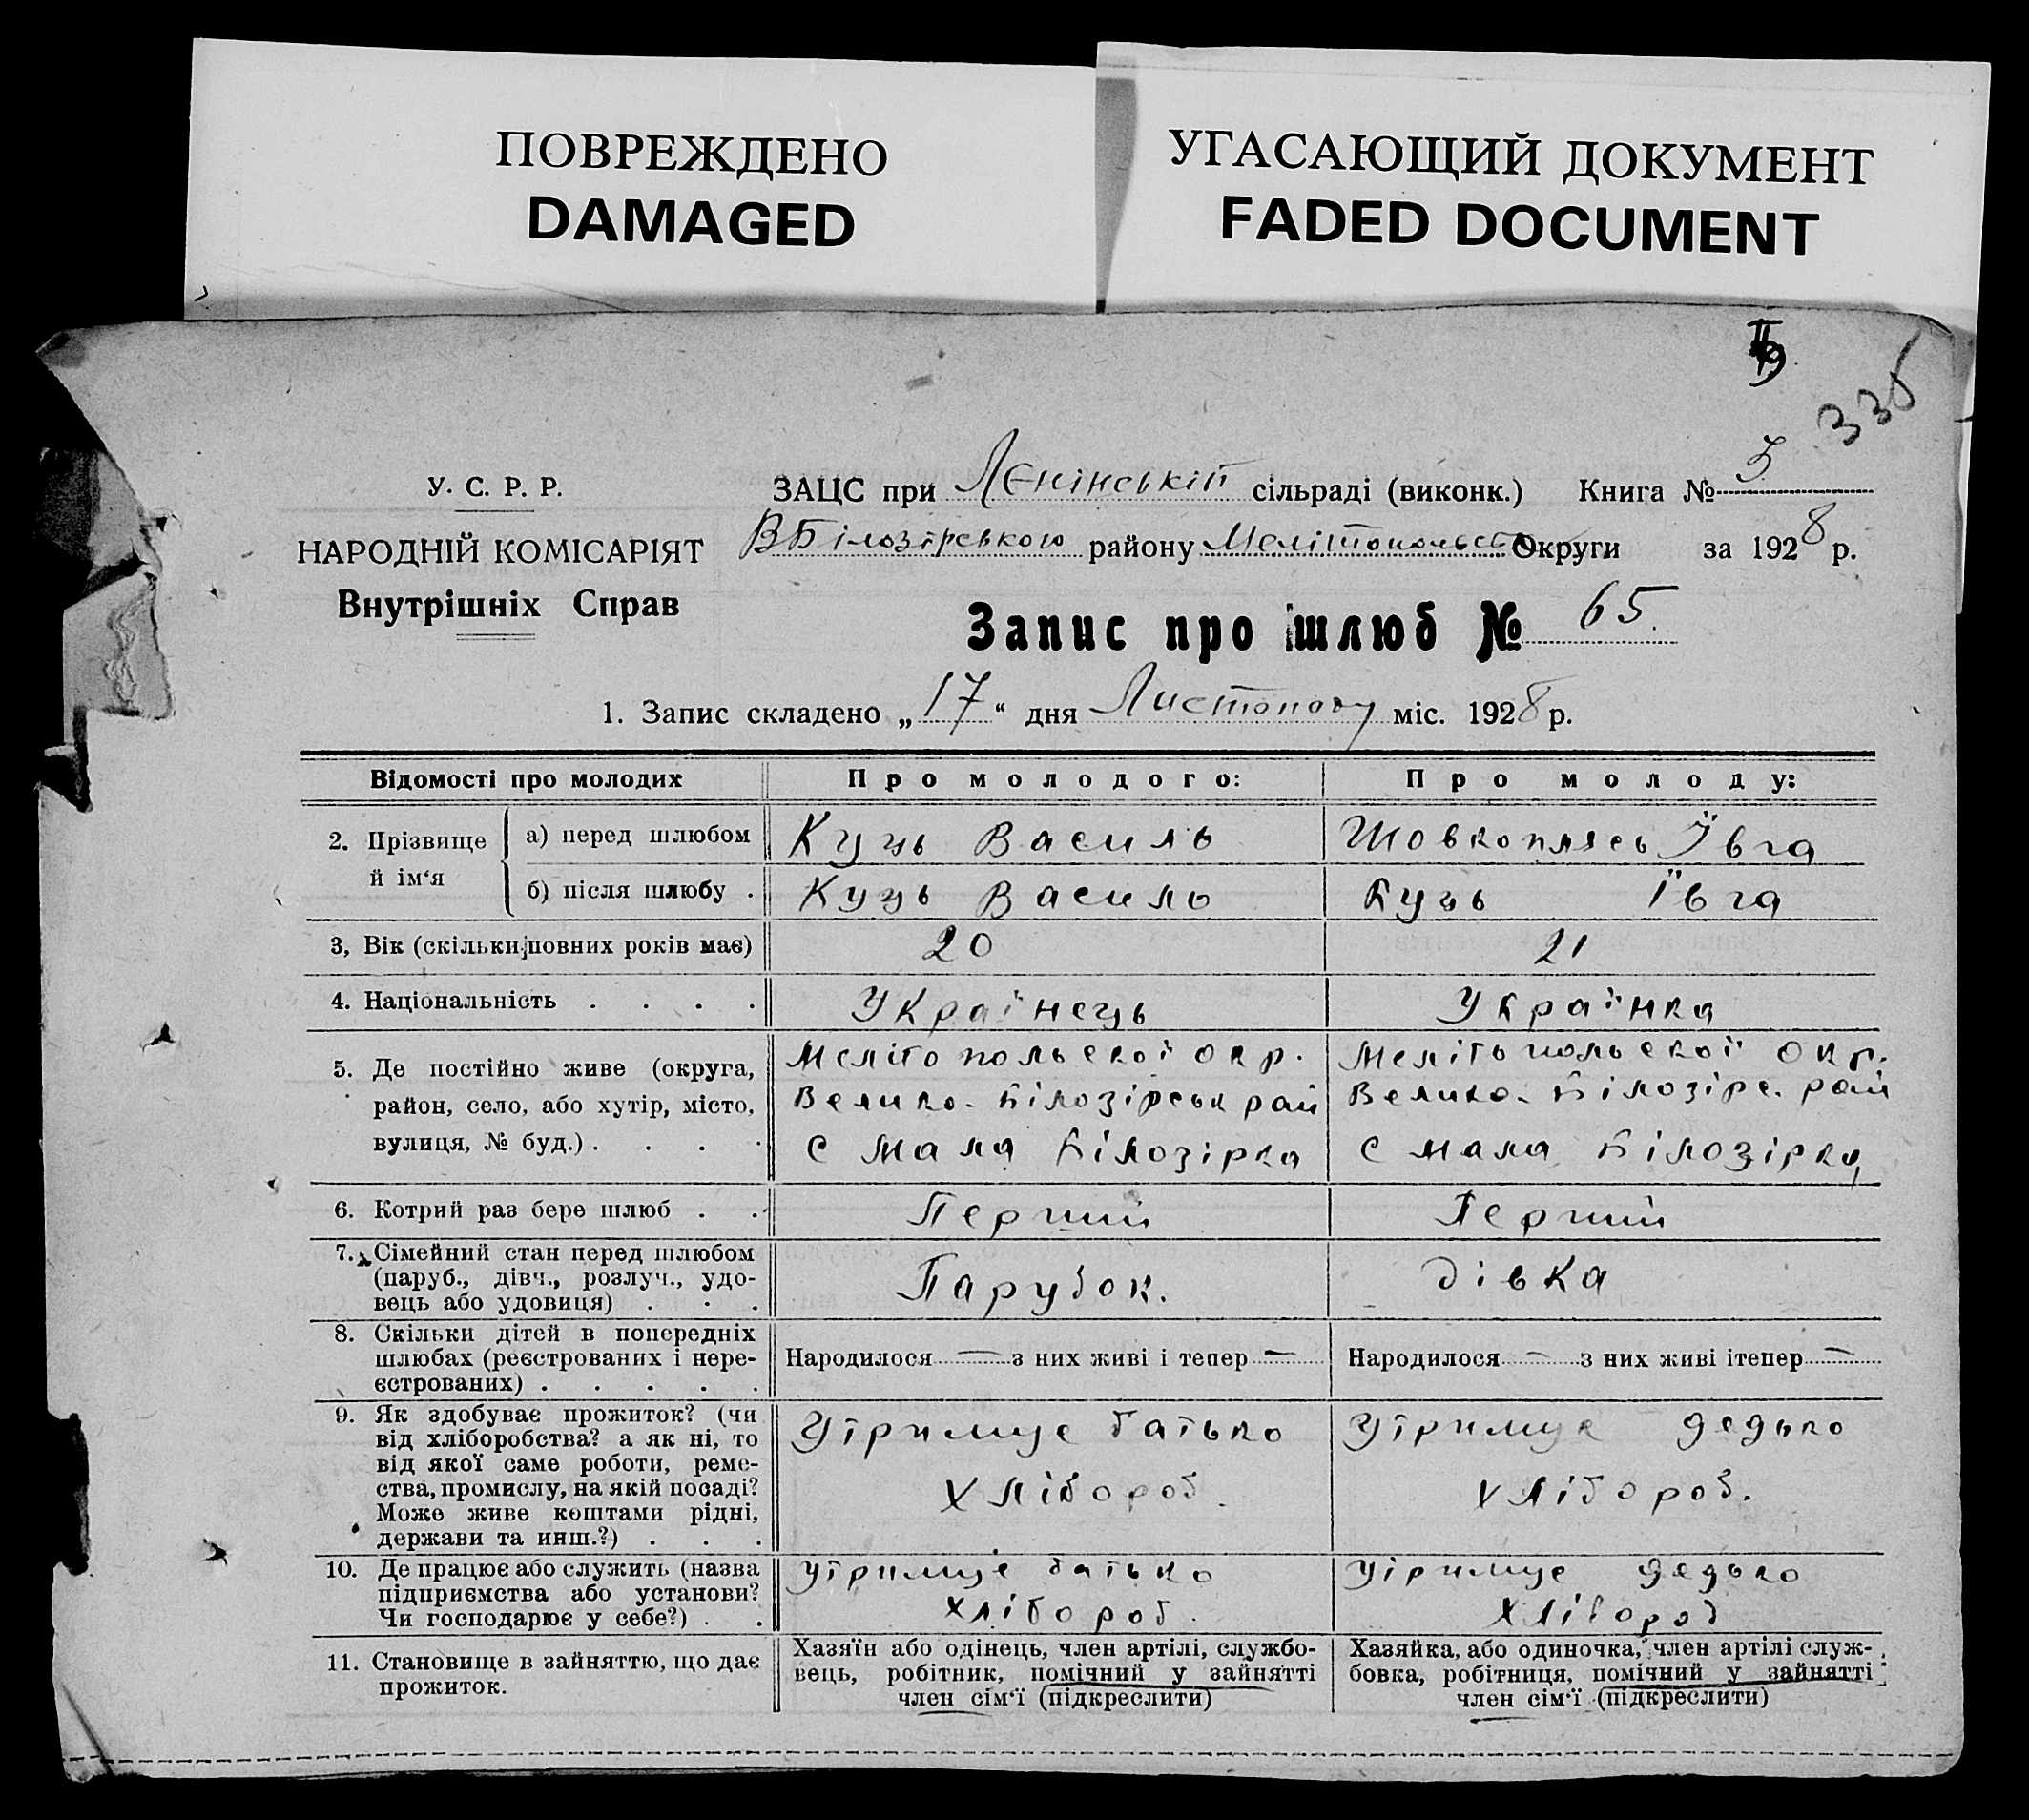 ПОВРЕЖДЕНО
DAMAGED
УГАСАЮЩИЙ ДОКУМЕНТ
FADED DOCUMENT
336
У. С. Р. Р.
НАРОДНІЙ КОМІСАРІЯТ
Внутрішніх Справ
ЗАЦС при Лєнінській сільраді (виконк.) Книга № 5
ВБілозірського району Мелітопольсько Округи за 1928 р.
Запис про шлюб № 65.
1. Запис складено „17“ дня Листопаду міс. 1928 р.
Відомості про молодих
Про молодого:
Про молоду:
2. Прізвище й ім‘я
а) перед шлюбом
Куць Василь
Шовкоплясь Ївга
б) після шлюбу .
Куць Василь
Куць Ївга
3, Вік (скільки повних років має)
20
21
4. Національність . . . .
Українець
Українка
5. Де постійно живе (округа,
район, село, або хутір, місто,
вулиця, № буд.) . . . .
Мелітопольської окр.
Велико-Білозірськ рай
с Мала Білозірка
Мелітопольської окр.
Велико-Білозірс. рай
с Мала Білозірка
6. Котрий раз бере шлюб . .
Перший
Перший
7. Сімейний стан перед шлюбом
(паруб., дівч., розлуч., удо-
вець або удовиця) . . .
Парубок.
дівка
8. Скільки дітей в попередніх
шлюбах (реєстрованих і нере-
єстрованих) . . . . .
Народилося — з них живі і тепер —
Народилося — з них живі ітепер —
9. Як здобуває прожиток? (чи
від хліборобства? а як ні, то
від якої саме роботи, реме-
ства, промислу, на якій посаді?
Може живе коштами рідні,
держави та инш.?) . . .
Утримує батько
Хлібороб.
Утримує дедько
хлібороб.
10. Де працює або служить (назва
підприємства або установи?
Чи господарює у себе?) . .
утримує батько
хлібороб.
утримує дедько
хлібороб
11. Становище в зайняттю, що дає
прожиток.
Хазяїн або одінець, член артілі, службо-
вець, робітник, помічний у зайнятті
член сім‘ї (підкреслити)
Хазяйка, або одиночка, член артілі служ-
бовка, робітниця, помічний у зайнятті
член сім‘ї (підкреслити)